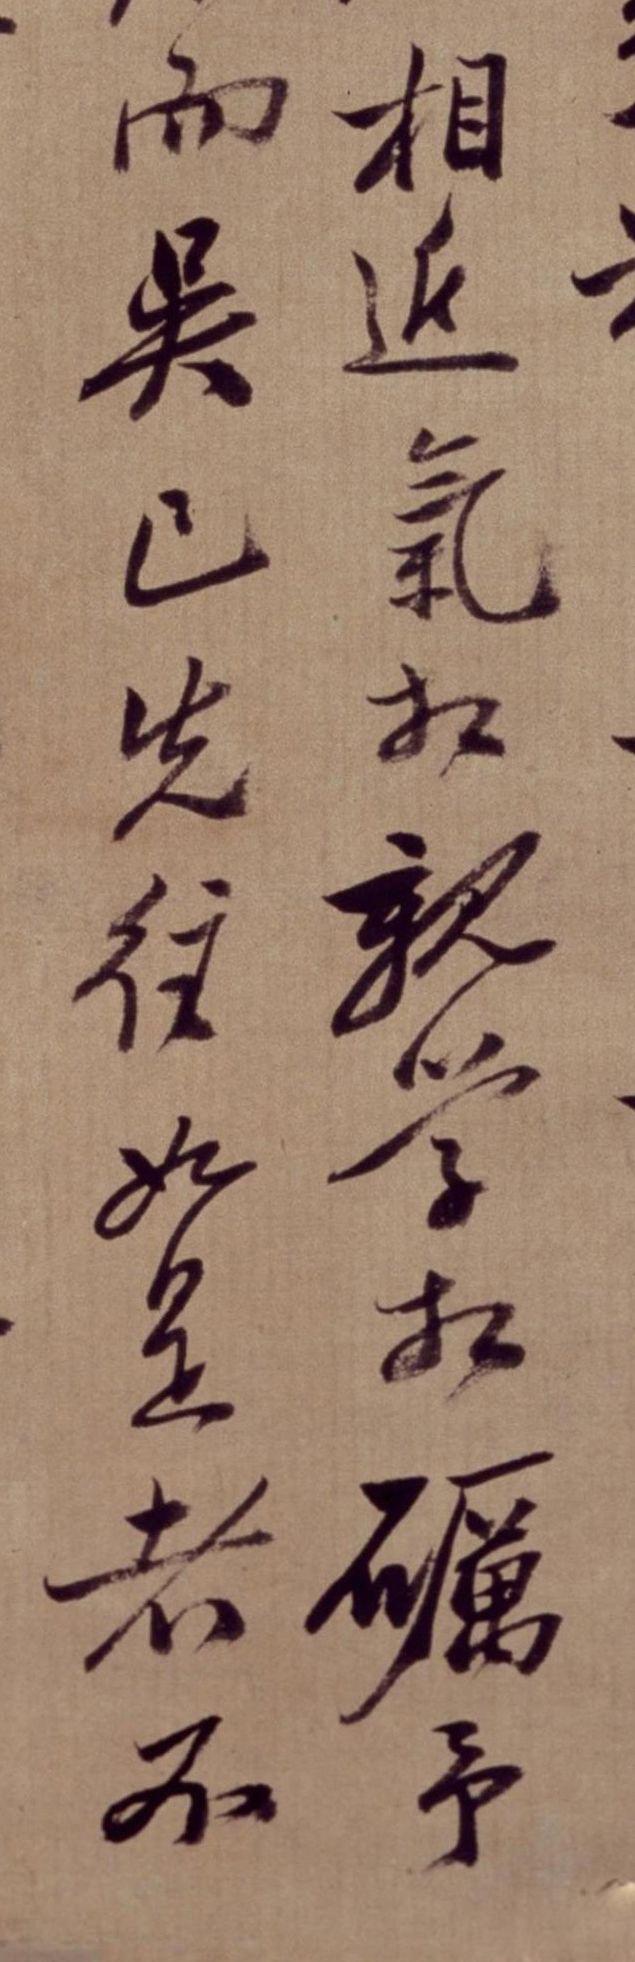 相近氣相親學相礪予
而吳已先往如是者不